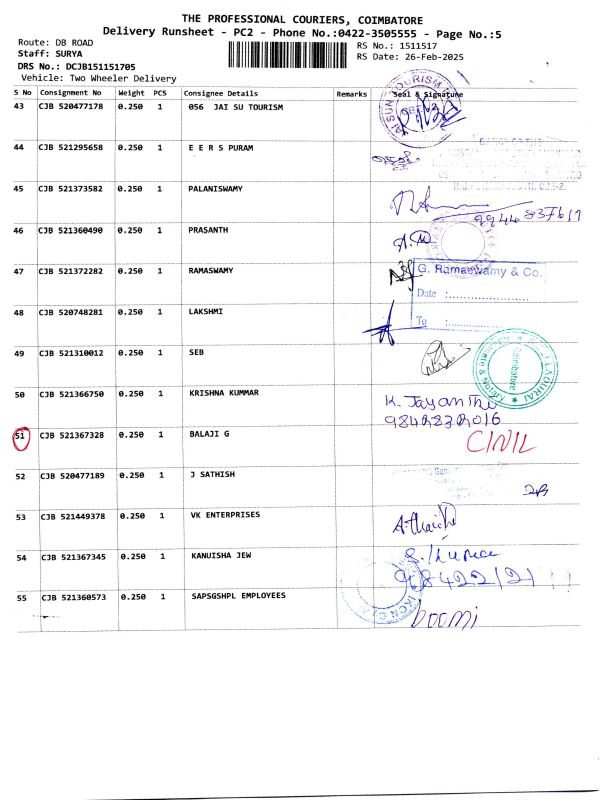 THE PROFESSIONAL COURIERS, COIMBATORE
Delivery Runsheet - PC2 - Phone No.:0422-3505555 - Page No.:5
Route: DB ROAD
RS No.: 1511517
Staff: SURYA
RS Date: 26-Feb-2025
DRS No.: DCJB151151705
Vehicle: Two Wheeler Delivery
S No Consignment No Weight PCS Consignee Details Remarks Seal & Signature
43 CJB 520477178 0.250 1 056 JAI SU TOURISM
44 CJB 521295658 0.250 1 E E R S PURAM
45 CJB 521373582 0.250 1 PALANISWAMY
46 CJB 521360490 0.250 1 PRASANTH
47 CJB 521372282 0.250 1 RAMASWAMY
G. Ramaswamy & Co.
Date :
To :
48 CJB 520748281 0.250 1 LAKSHMI
49 CJB 521310012 0.250 1 SEB
50 CJB 521366750 0.250 1 KRISHNA KUMMAR
K. Jayanthi
9842832016
51 CJB 521367328 0.250 1 BALAJI G
52 CJB 520477189 0.250 1 J SATHISH
53 CJB 521449378 0.250 1 VK ENTERPRISES
54 CJB 521367345 0.250 1 KANUISHA JEW
55 CJB 521360573 0.250 1 SAPSGSHPL EMPLOYEES
boomi